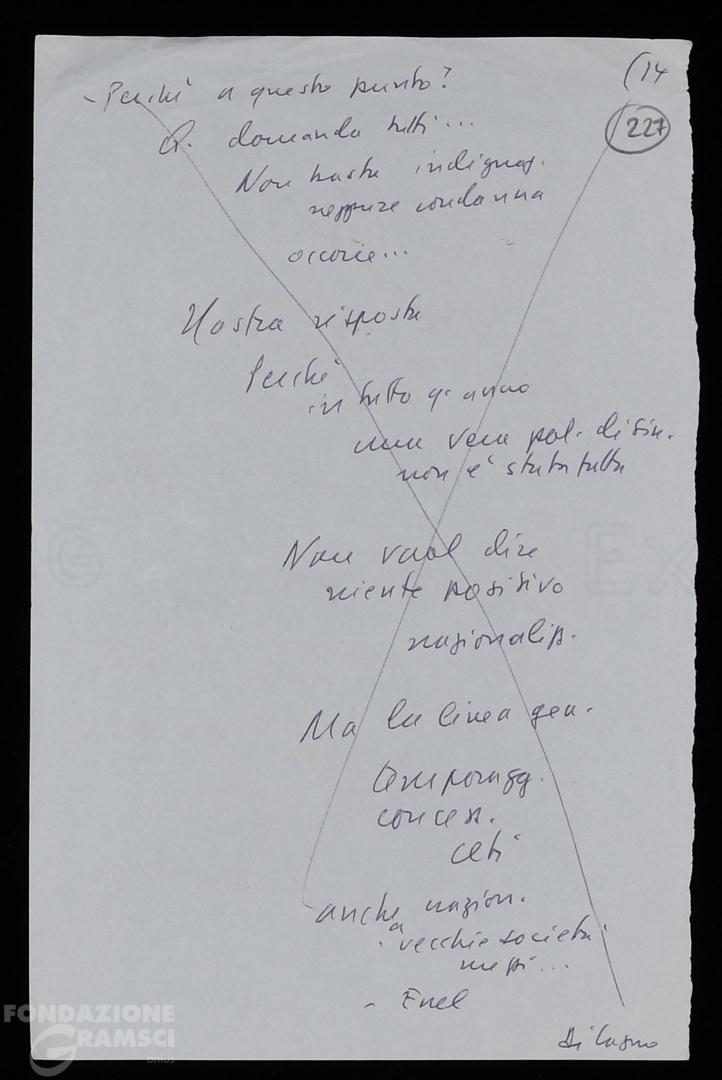 (14
- Perché a questo punto?
227
Q. domanda tutti...
Non basta indignaz.
neppure condanna
occorre...
Nostra risposta
Perché
in tutto q. anno
una vera pol. di sin.
non è stata fatta
Non vuol dire
niente positivo
nazionaliz.
Ma la linea gen.
concess.
ceti
- anche nazion.
a vecchie società
mezzi...
- Enel
Di Cagno
G Ex
FONDAZIONE
GRAMSCI
onlus